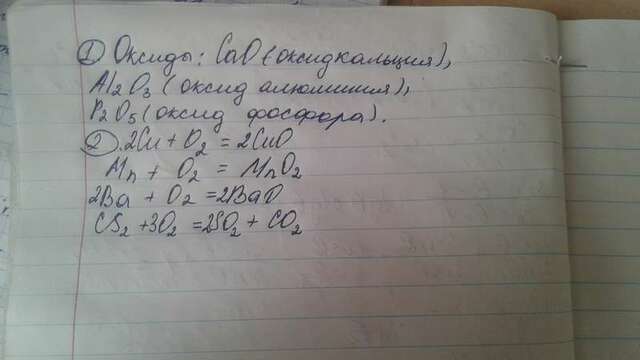 1 Оксиды: CaO (оксид кальция),
Al2O3 (оксид алюминия),
P2O5 (оксид фосфора).
2. 2Cu + O2 = 2CuO
Mn + O2 = MnO2
2Ba + O2 = 2BaO
CS2 + 3O2 = 2SO2 + CO2